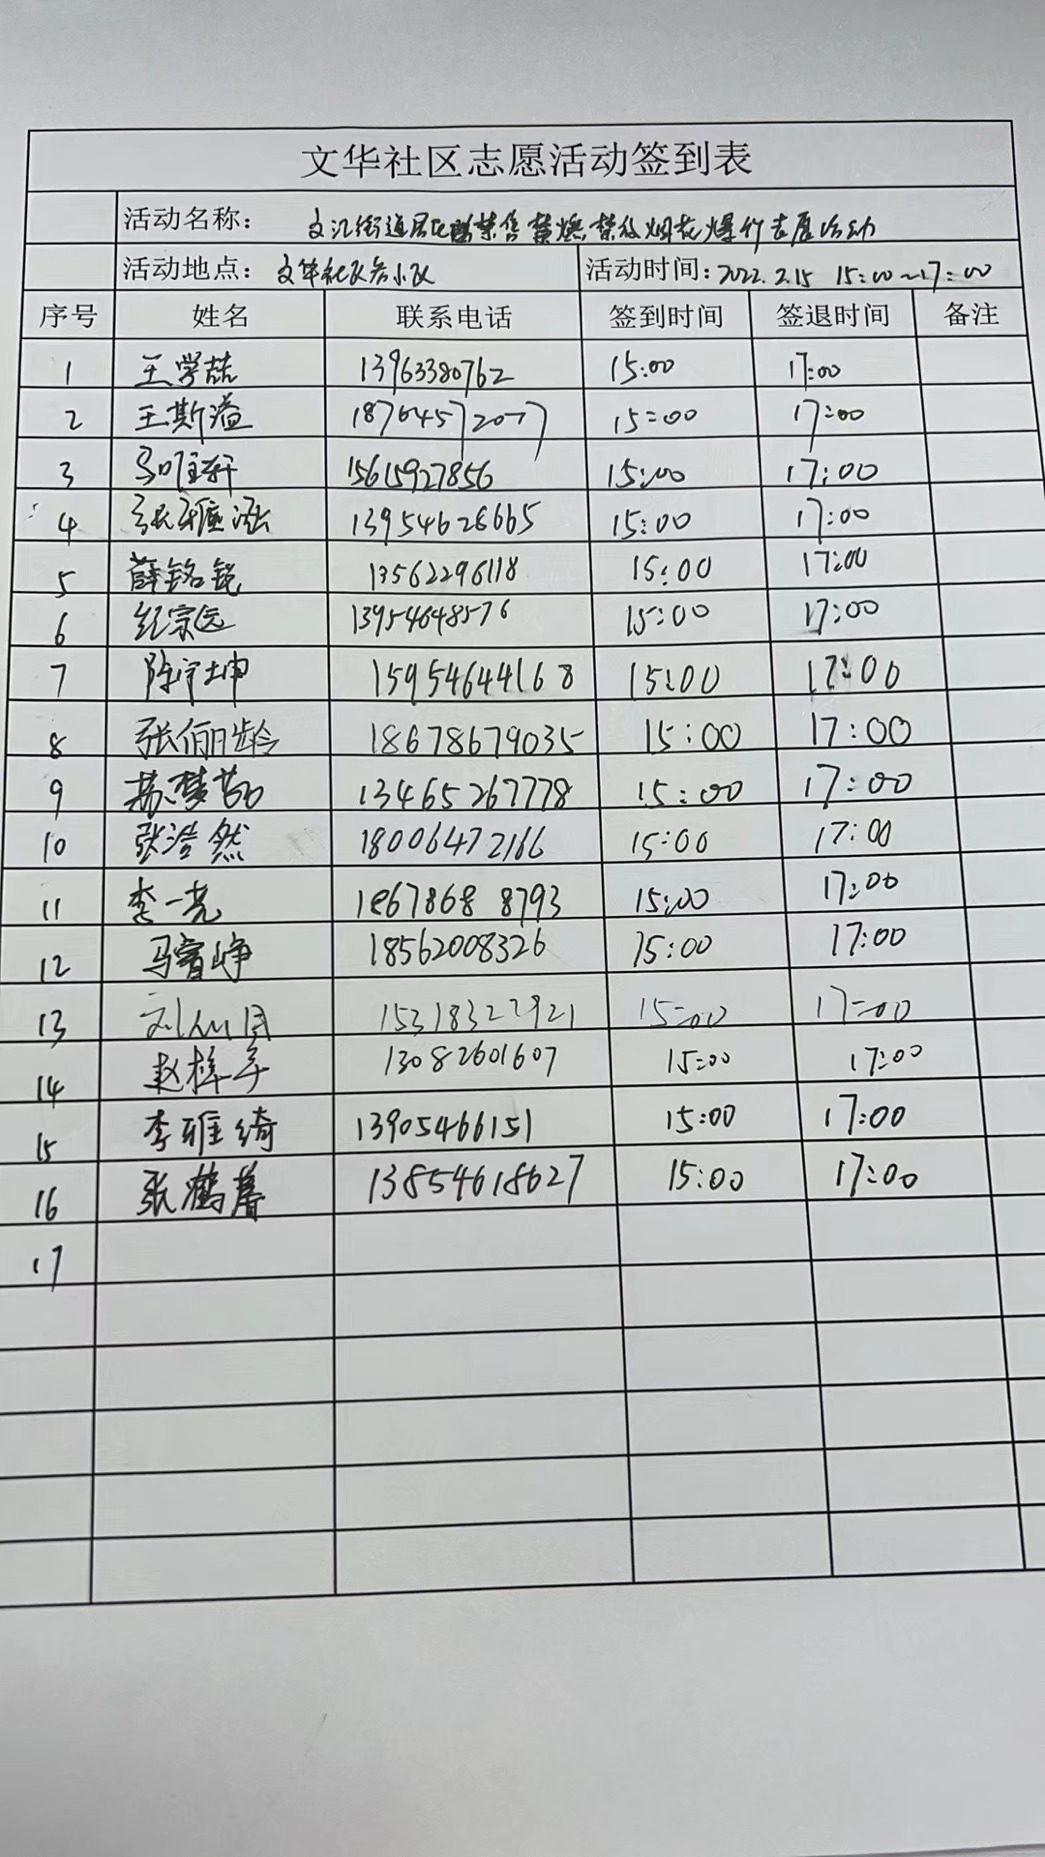 文华社区志愿活动签到表
活动名称: 文汇街道居民禁售禁燃禁放烟花爆竹志愿活动
活动地点: 文华社区各小区 活动时间: 2022.2.15 15:00~17:00
序号 姓名 联系电话 签到时间 签退时间 备注
1 王学喆 13963380762 15:00 17:00
2 王斯溢 18764572077 15:00 17:00
3 轩 15615927856 15:00 17:00
4 张雅泓 13954628665 15:00 17:00
5 薛铭锐 13562296118 15:00 17:00
6 纪宗远 13954648576 15:00 17:00
7 陈宇坤 15954644168 15:00 17:00
8 张龄 18678679035 15:00 17:00
9 苏梦茹 13465267778 15:00 17:00
10 张浩然 18006472166 15:00 17:00
11 李一尧 18678688793 15:00 17:00
12 马睿峥 18562008326 15:00 17:00
13 刘 15318327921 15:00 17:00
14 赵梓 13082601607 15:00 17:00
15 李雅绮 13905466151 15:00 17:00
16 张鹤馨 13854618627 15:00 17:00
17